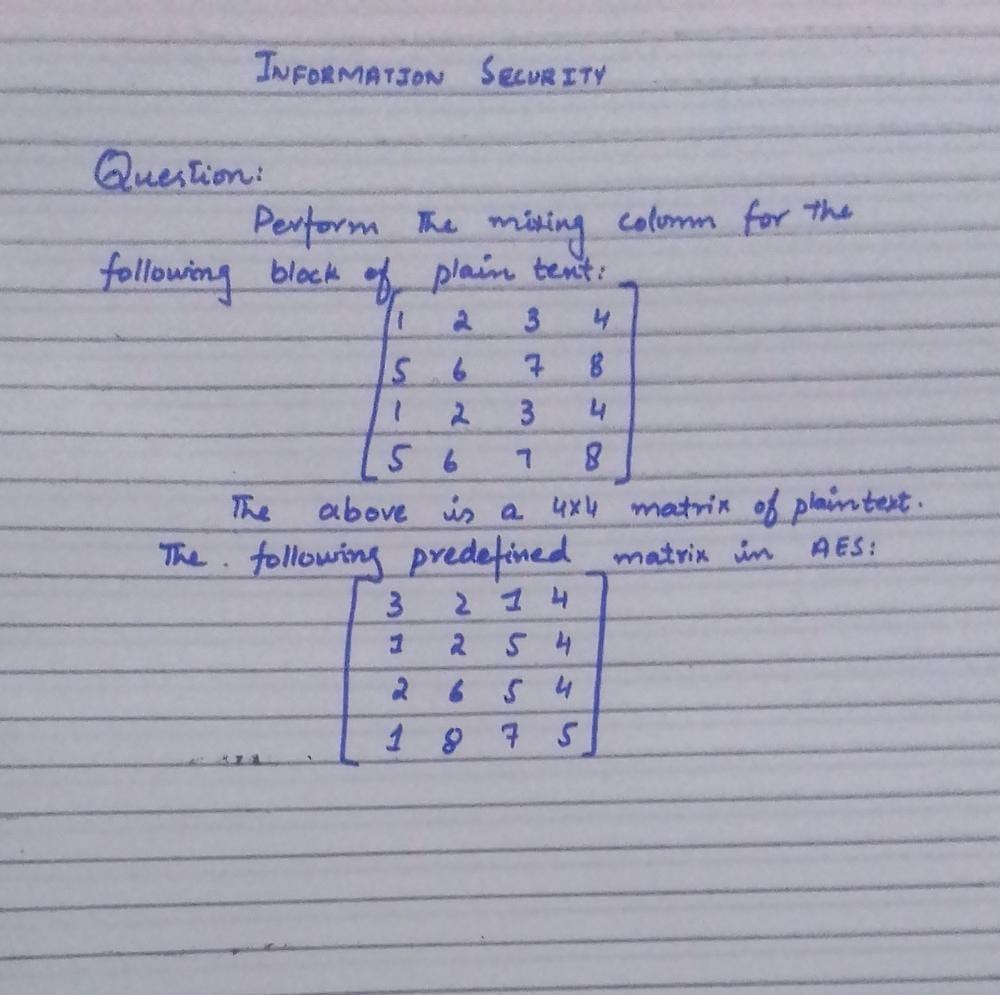 INFORMATION SECURITY
Question:
Perform The mixing column for the
following block of plain text:
1 2 3 4
5 6 7 8
1 2 3 4
5 6 7 8
The above is a 4x4 matrix of plaintext.
The. following predefined matrix in AES:
3 2 1 4
1 2 5 4
2 6 5 4
1 8 7 5